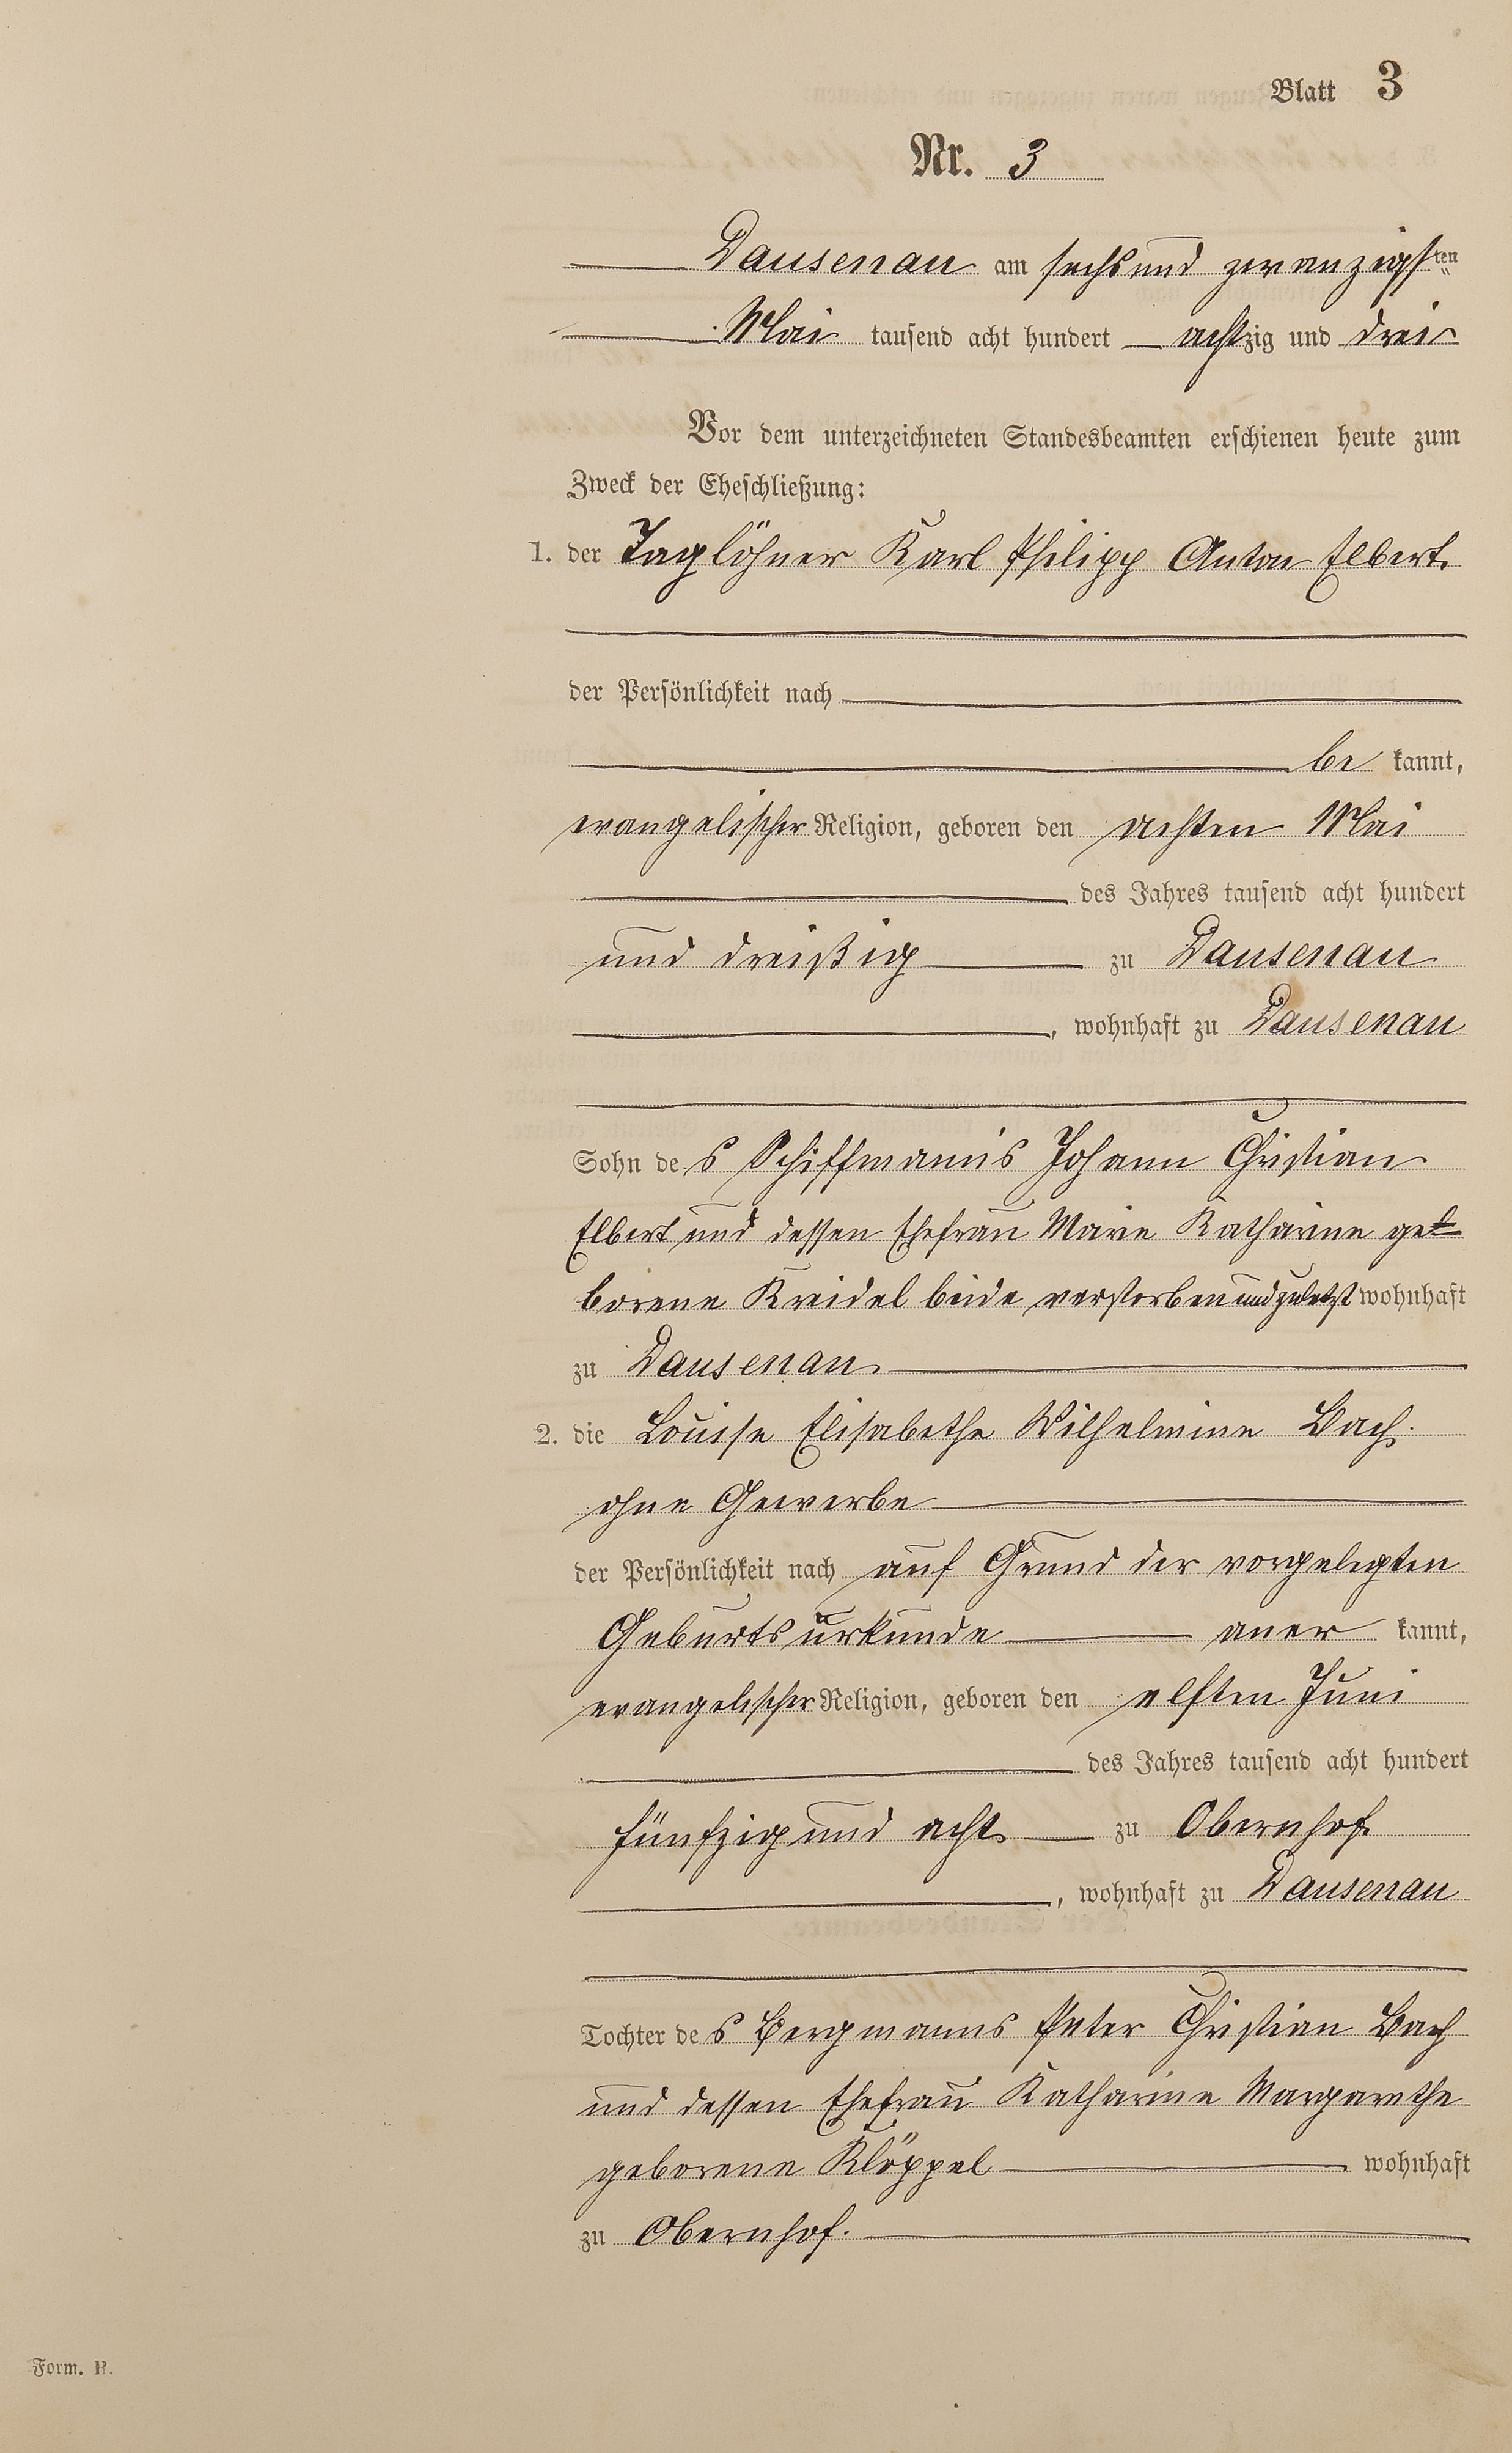 Blatt 3
Nr. 3
Dausenau am sechsund zwanzigsten
Mai tausend acht hundert achtzig und drei
Vor dem unterzeichneten Standesbeamten erschienen heute zum
Zweck der Eheschließung:
1. der Taglöhner Karl Philipp Anton Elbert.
der Persönlichkeit nach
be kannt,
evangelischer Religion, geboren den achten Mai
des Jahres tausend acht hundert
und dreißig zu Dausenau
, wohnhaft zu Dausenau
Sohn des Schiffmanns Johann Christian
Elbert und dessen Ehefrau Marie Katharine ge
borene Kreidel beide verstorben und zuletzt wohnhaft
zu Dausenau.
2. die Louise Elisabethe Wilhelmine Bach.
ohne Gewerbe
der Persönlichkeit nach auf Grund der vorgelegten
Geburtsurkunde aner kannt,
evangelischer Religion, geboren den elften Juni
des Jahres tausend acht hundert
fünfzig und acht zu Obernhof
, wohnhaft zu Dausenau
Tochter des Bergmanns Peter Christian Bach
und dessen Ehefrau Katharine Margarethe
geborene Klöppel wohnhaft
zu Obernhof.
Form. B.